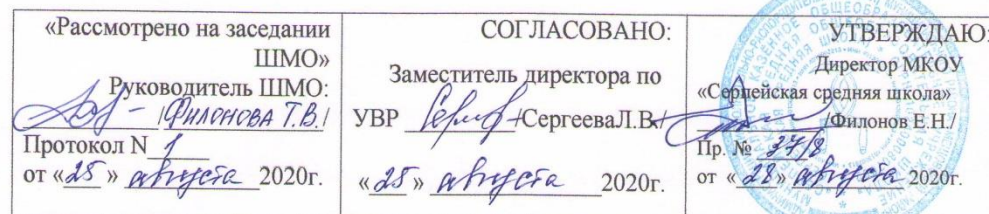 «Рассмотрено на заседании
ШМО»
Руководитель ШМО:
/Филонова Т.В./
Протокол N 1
от «25» августа 2020г.
СОГЛАСОВАНО:
Заместитель директора по
УВР /СергееваЛ.В./
«25» августа 2020г.
УТВЕРЖДАЮ:
Директор МКОУ
«Серпейская средняя школа»
/Филонов Е.Н./
Пр. № 37/8
от «28» августа 2020г.